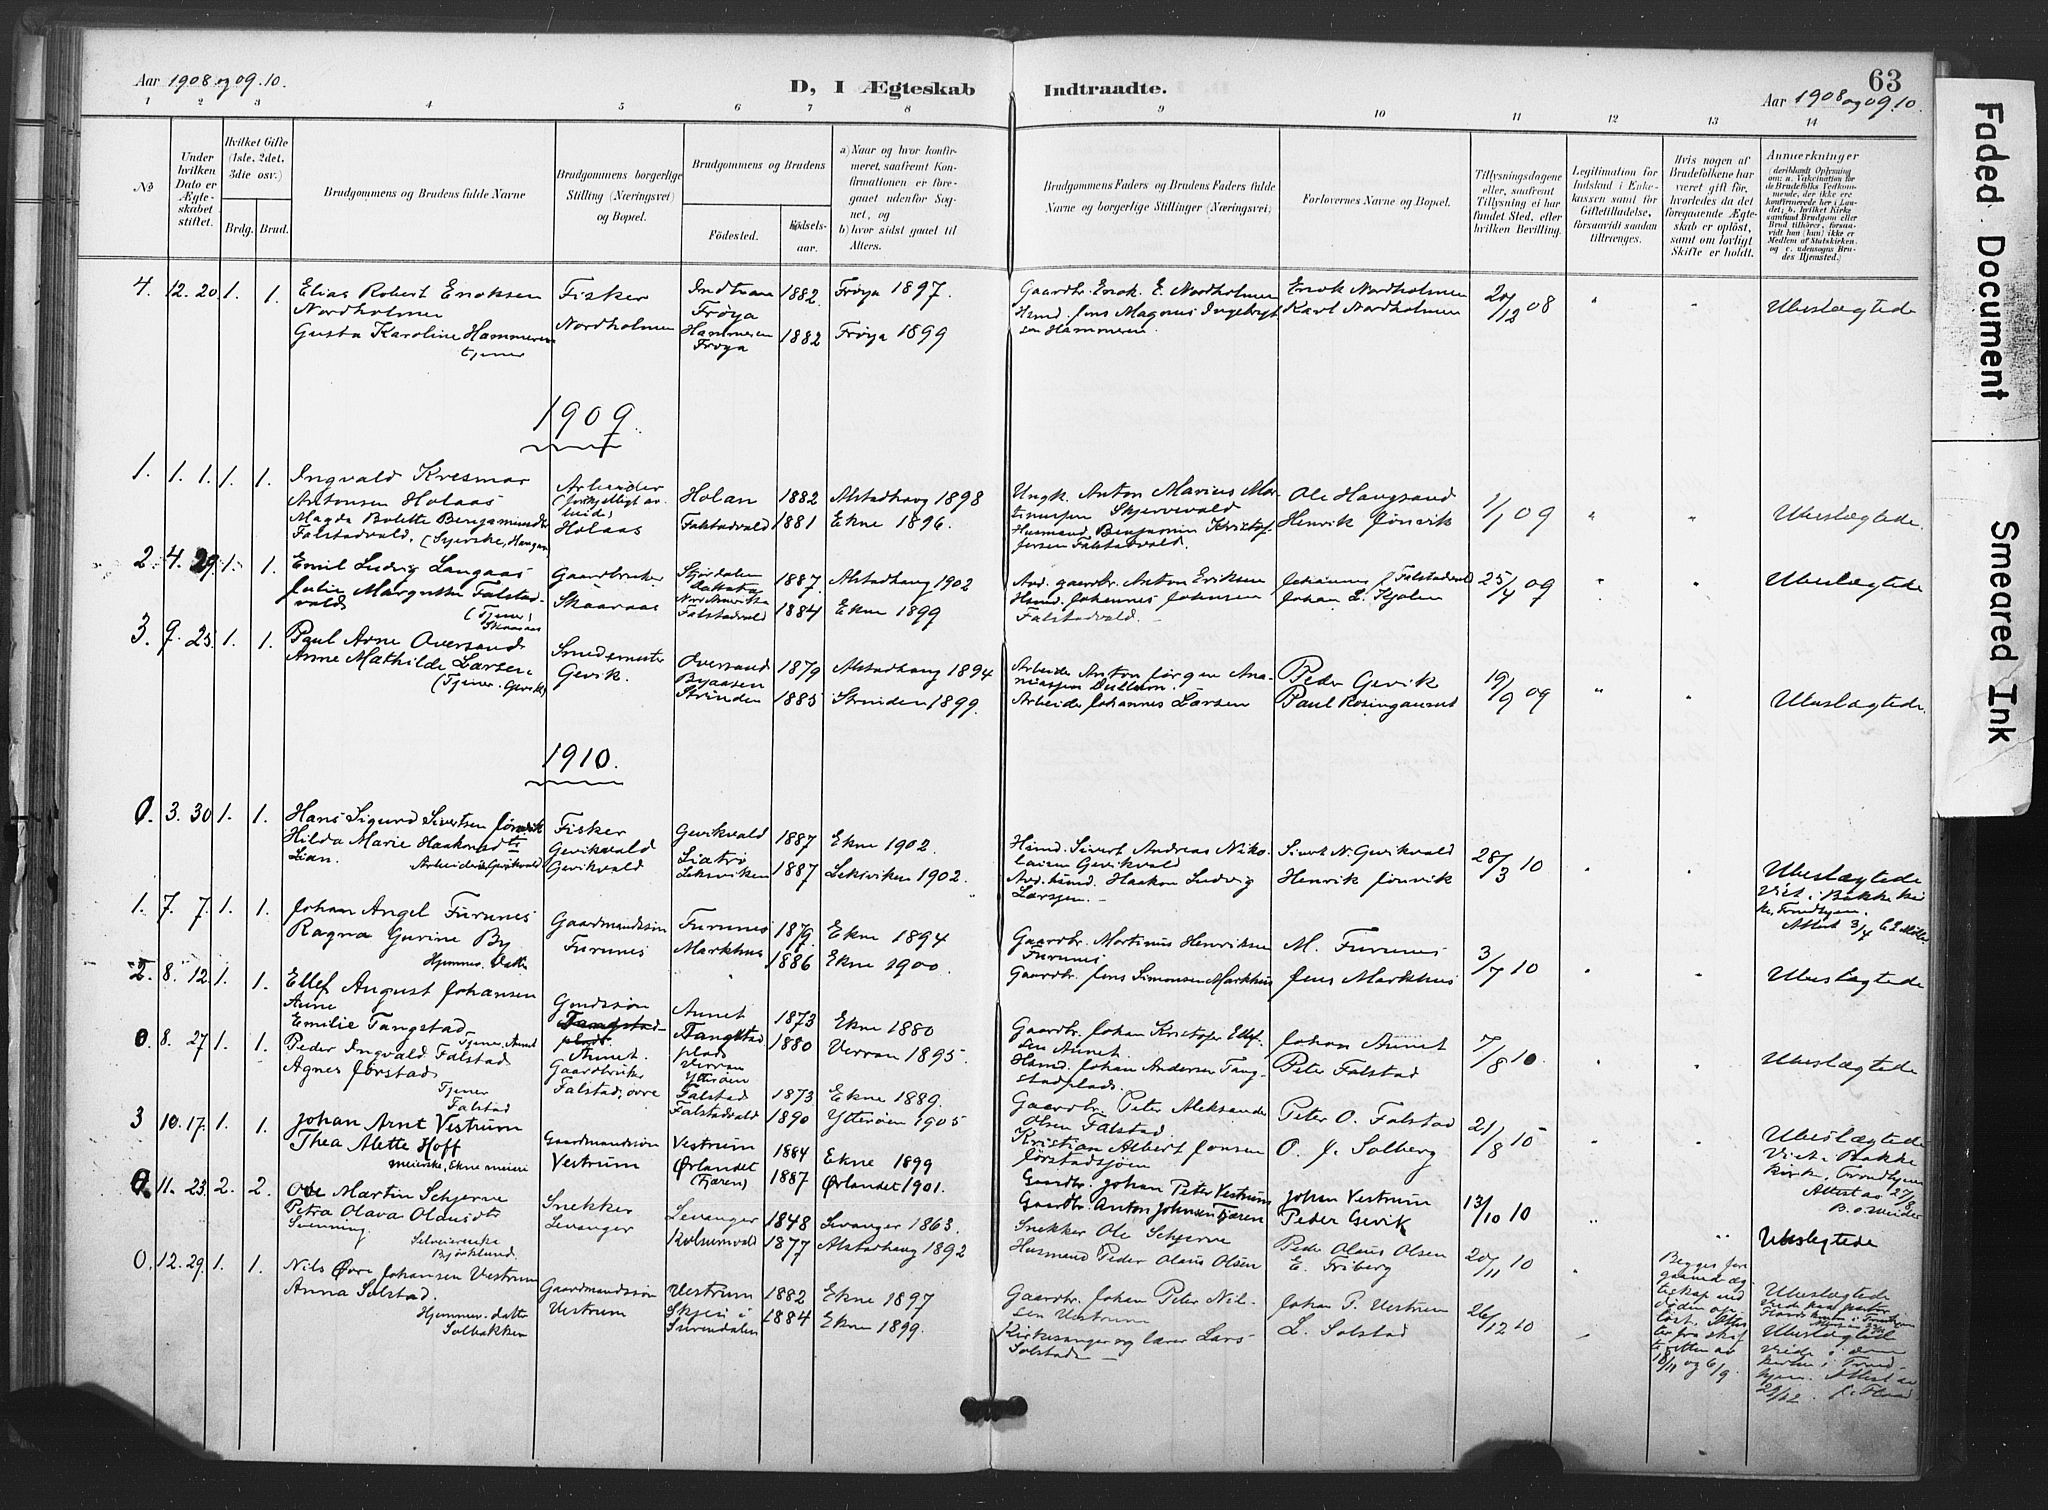 Aar 1908 og 09. 10.
D, I Ægteskab Indtraadte.
63
Aar 1908 og 09. 10.
1 2 3 4 5 6 7 8 9 10 11 12 13 14
No
Under hvilken Dato er Ægteskabet stiftet.
Hvilket Gifte (1ste, 2det, 3die osv.)
Brdg. Brud.
Brudgommens og Brudens fulde Navne
Brudgommens borgerlige Stilling (Næringsvei) og Bopæl.
Brudgommens og Brudens
Fødested.
Fødselsaar.
a) Naar og hvor konfirmeret, saafremt Konfirmationen er foregaaet udenfor Sognet, og
b) hvor sidst gaaet til Alters.
Brudgommens Faders og Brudens Faders fulde Navne og borgerlige Stillinger (Næringsvei)
Forlovernes Navne og Bopæl.
Tillysningsdagene eller, saafremt Tillysning ei har fundet Sted, efter hvilken Bevilling.
Legitimation for Indskud i Enkekassen samt for Giftetilladelse, forsaavidt saadan tiltrænges.
Hvis nogen af Brudefolkene har været gift før, hvorledes da det foregaaende Ægteskab er opløst, samt om lovligt Skifte er holdt.
Anmærkninger
(deriblandt Oplysning om: a. Vakcination for de Brudefolks Vedkommende, der ikke ere konfirmerede her i Landet; b. hvilket Kirkesamfund Brudgom eller Brud tilhører, forsaavidt han (hun) ikke er Medlem af Statskirken og c. udensogns Brudes Hjemsted.)
4. 12. 20. 1. 1. Elias Robert Enoksen Fisker 1882. Frøya 1897. Gaardbr. Enok E. Nordholmen Enok Nordholmen 20/12 08 " " Ubeslægtede
Nordholmen Nordholmen Frøya Husmd. Jens Magnus Ingebrigtsen Hammeren Karl Nordholmen
Gusta Karoline Hammeren Hammeren Frøya 1882 Frøya 1899
tjener
1909.
1. 1. 1. 1. 1. Ingvald Kresmar Arbeider Holan 1882 Alstadhaug 1898 Ungk. Anton Marius Martinusen Skjervevald Ole Haugsand 1/1 09 " " Ubeslægtede.
Antonsen Holaas Holaas
Magda Bolette Benjaminsdtr Falstadvald 1881 Ekne 1896. Husmand Benjamin Kristoffersen Falstadvald. Henrik Jønvik
Falstadvald. (Syerske, Haugan)
2. 4. 29. 1. 1. Emil Ludvig Langaas Gaardbruker Stjørdalen 1887. Alstadhaug 1902 Avd. gaardbr. Anton Eriksen Johannes J. Falstadvald 25/4 09 " " Ubeslægtede
Julie Margrethe Falstadvald Skaaraas Falstadvald 1884 Ekne 1899 Husmd. Johannes Johnsen Falstadvald. Johan L. Kjølen
(Tjener, Skaaraas
3. 9. 25. 1. 1. Paul Arne Oversand Smedemester Oversand 1879 Alstadhaug 1894 Arbeider Anton Jørgen Ananiassen Peder Gevik 19/9 09 " " Ubeslægtede.
Anne Mathilde Larsen Gevik. Byaasen Strinden 1885 Strinden 1899. Arbeider Johannes Larsen Paul Rosingaunet
(Tjener. Gevik)
1910.
0. 3. 30 1. 1. Hans Sigurd Sivertsen Jønvik Fisker Gevikvald 1887 Ekne 1902. Husmd. Sivert Andreas Nikolaisen Gevikvald Sivert N. Gevikvald 28/3 10 " " Ubeslægtede
Hilda Marie Haakonsdtr Gevikvald Leksviken 1887 Leksviken 1902. Avd. husmd. Haakon Ludvig Larssen. Henrik Jønvik Viet i Bakke kirke, Trondhjem.
Lian. Arbeiderske Gevikvald Gevikvald Attest 3/4
1. 7. 7. 1. 1. Johan Angel Furunes Gaardmandssøn Furunes 1879. Ekne 1894 Gaardbr. Martinus Henriksen Furunes M. Furunes 3/7 10 " " Ubeslægtede
Ragna Gurine By Furunes Markhus 1886 Ekne 1900. Gaardbr. Jens Simonsen Markhus Jens Markhus
Hjemmev. Datter
2. 8. 12. 1. 1. Ellef August Johansen Gmdssøn Aunet 1873 Ekne 1880 Gaardbr. Johan Kristofer Ellefsen Aunet. Johan Aunet 7/8 10. " " Ubeslægtede
Aune Aunet.
Emilie Tangstad Tjener, Aunet Tangstadplads Verran 1880 Verran 1895. Husmd. Johan Andersen Tangstadplads. Peter Falstad
0. 8. 27 1. 1. Peder Ingvald Falstad Gaardbruker Falstad 1873 Ekne 1889. Gaardbr. Peter Aleksander Olsen Falstad Peter O. Falstad 21/8 10 " " Ubeslægtede
Agnes Jørstad Tjener Falstad Falstad, øvre Falstadvald 1890 Ytterøen 1905 Kristian Albert Jonsen Jørstadsjøen O. J. Solberg Viet i Bakke kirke, Trondhjem
3 10. 17. 1. 1. Johan Arnt Vestrum Gaardmandssøn Vestrum 1884 Ekne 1899 Gaardbr. Johan Peter Vestrum Johan Vestrum 13/10 10 "
Thea Alette Hoff Vestrum Ørlandet (Fjæren) 1887 Ørlandet 1901. Gaardbr. Anton Johnsen Fjæren Peder Gevik
meierske, Ekne meieri
0. 11. 23. 2. 2. Ole Martin Schjerne Snekker Levanger 1848 Levanger 1863. Snekker Ole Schjerne Peder Olaus Olsen 20/11 10 " Ubeslegtede
Petra Olava Olausdtr Levanger 1877 Alstadhaug 1892 Husmand Peder Olaus Olsen E. Friberg
Svenning Selveierenke Bjørklund.
Begges foregaaende ægteskap ved døden opløst. Attester fra skifteretten av 18/11 og 6/9.
0. 12. 29. 1. 1. Nils Øvre Johansen Vestrum Gaardmandssøn Vestrum 1882 Ekne 1897 Gaardbr. Johan Peter Nilssen Vestrum Johan P. Vestrum 26/12 10 " Ubeslegtede
Anna Solstad. Vestrum Surendalen 1884 Ekne 1899. Kirkesanger og lærer Lars Solstad L. Solstad
Hjemmev. datter
Solbakken
Ubeslegtede
Viede i domkirken i Trondhjem. Attest av 29/12
Faded Document
Smeared Ink